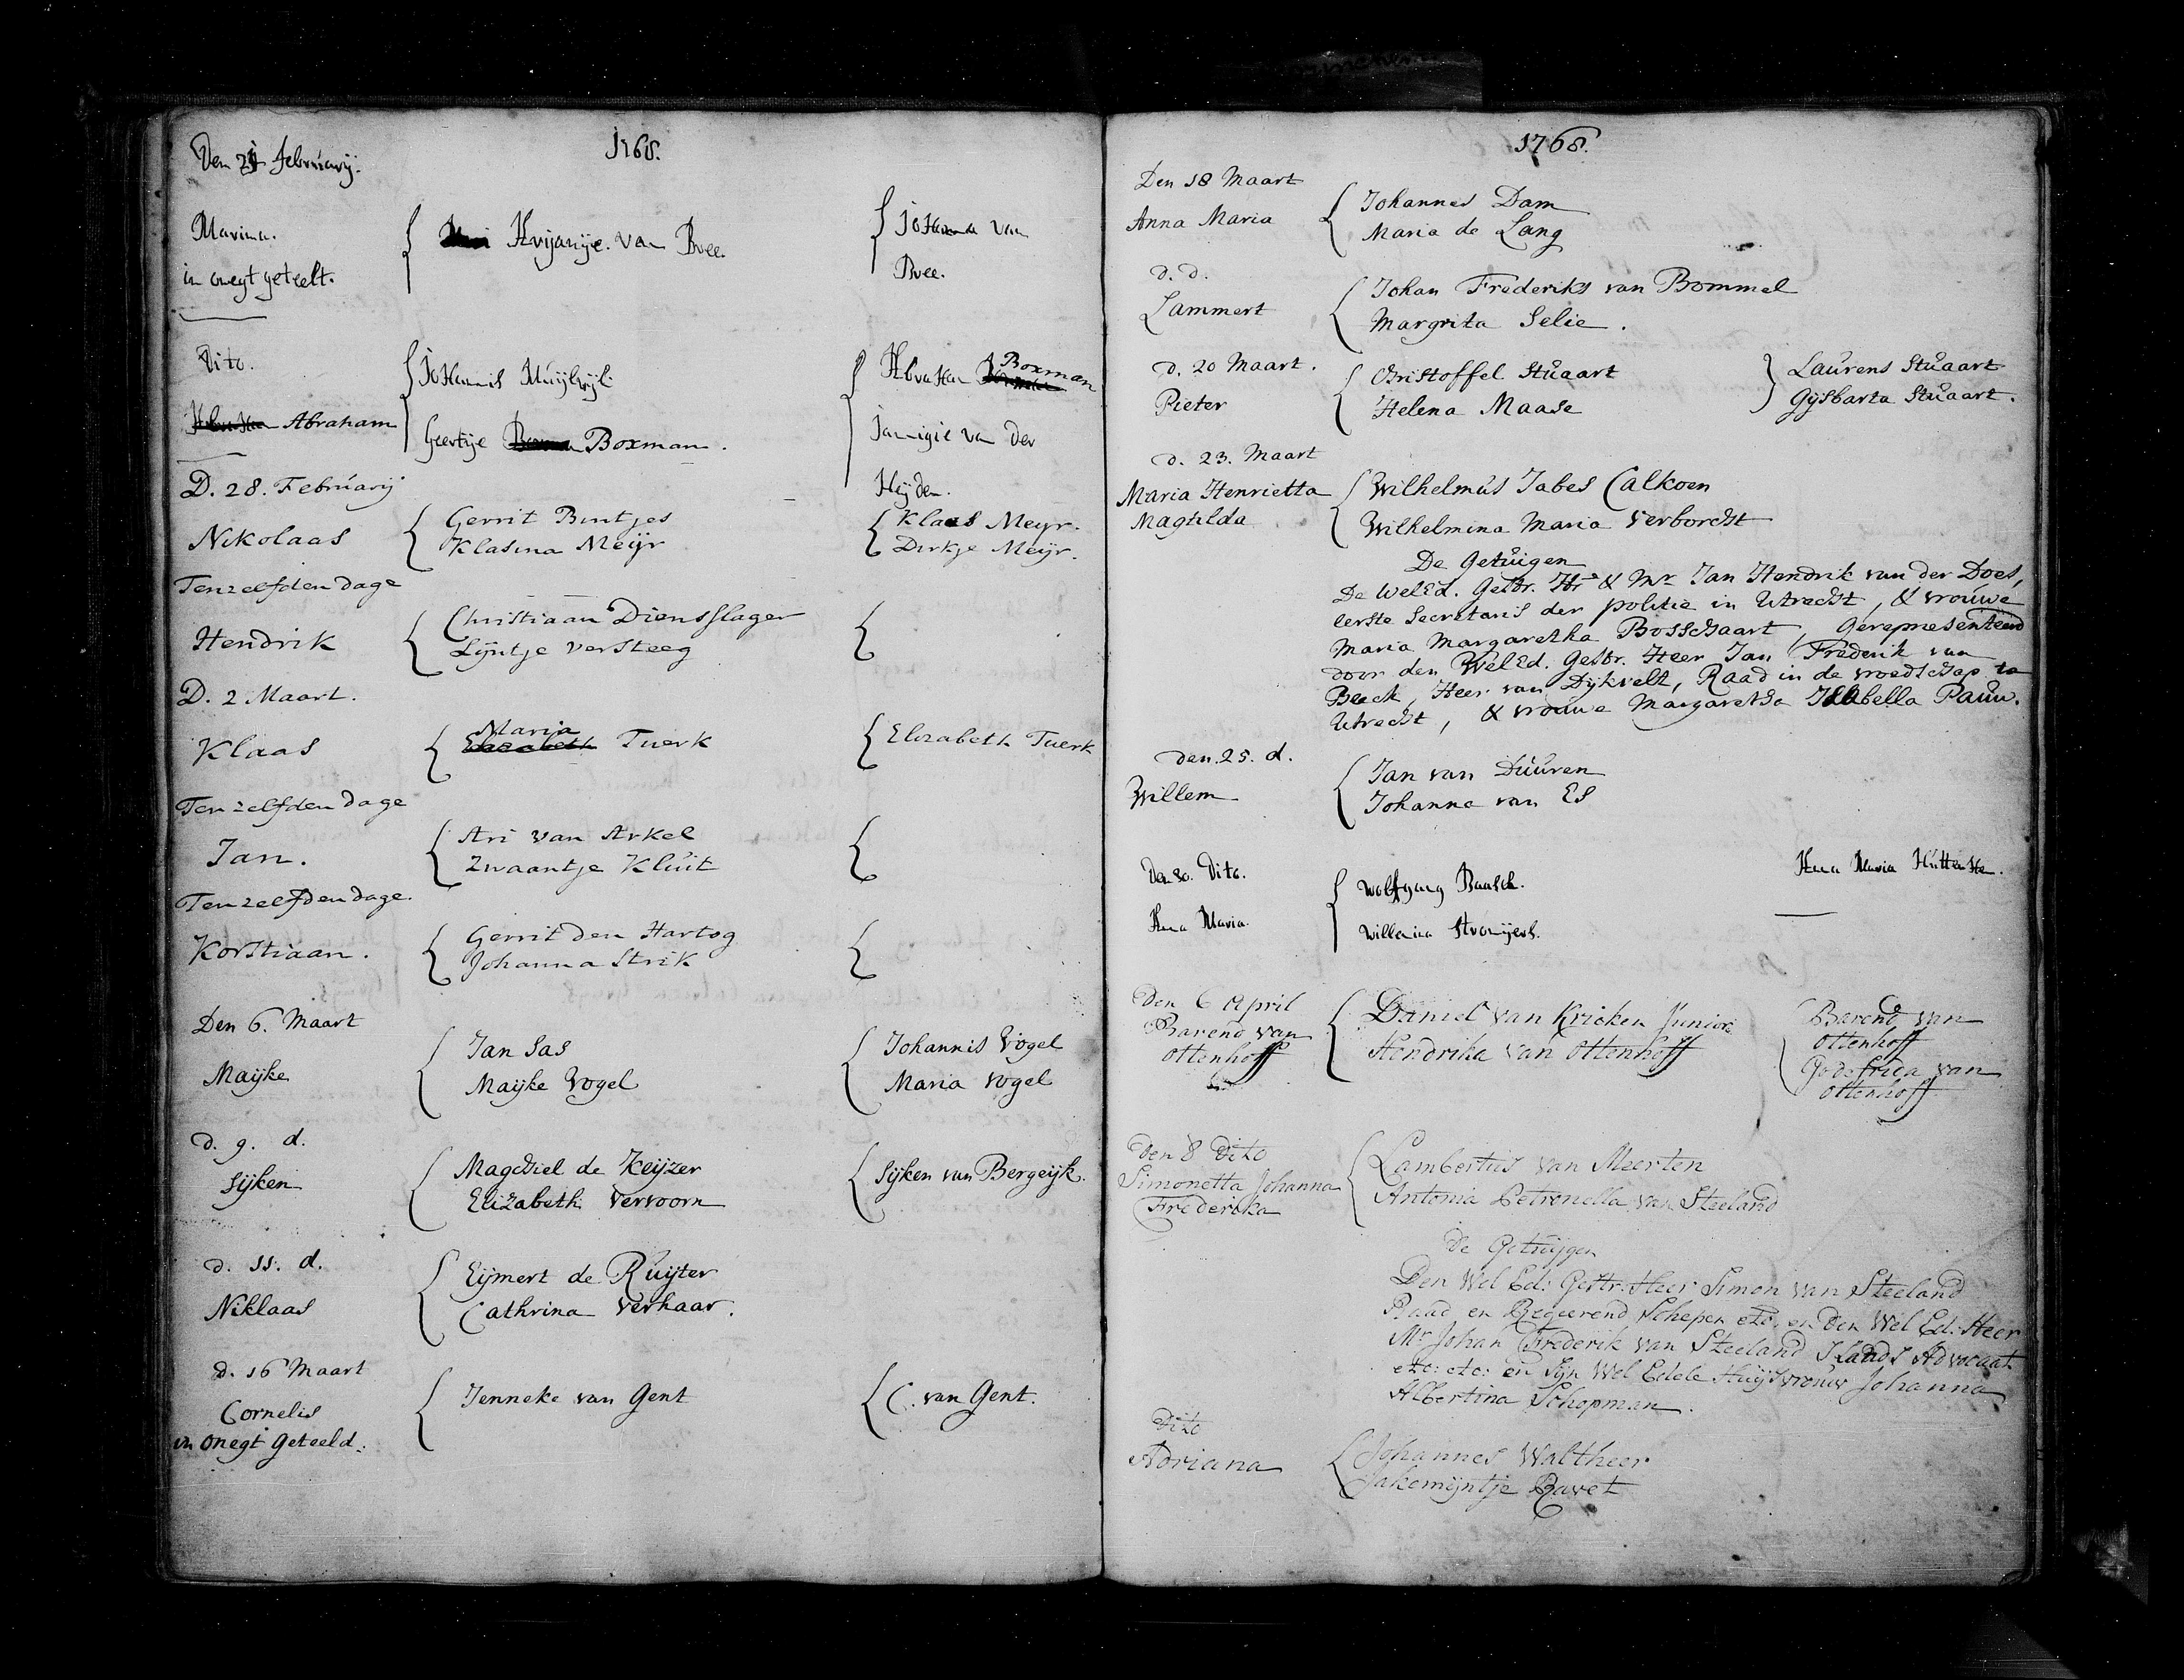 1768.
Den 21 februarij:
Marina.
in onegt geteelt.
Arijanije. van Bree.
Johanna van
Bree.
Dito.
Abraham
Johannis Muijlwijk
Geertije Boxman.
Abraham Boxman
Jannigie van der
Heijden.
D. 28. Februarij
Nikolaas
Gerrit Bintjes
Klasina Meijr
Klaas Meyr.
Dirkje Meijr.
Ten zelfden dage
Hendrik
Christiaan Diensslager
Lijntje versteeg
D. 2 Maart.
Klaas
Maria
Elizabeth Tuerk
Elizabeth Tuerk
Ten zelfden dage
Jan.
Ari van Arkel
Zwaantje Kluit
Ten zelfden dage.
Korstiaan.
Gerrit den Hartog
Johanna Strik
Den 6. Maart
Maijke
Jan Sas
Maijke Vogel
Johannis Vogel
Maria Vogel
d. 9. d.
Sijken
Magchiel de Keijzer
Elizabeth Vervoorn
Sijken van Bergeijk.
d. 11. d.
Niklaas
Eijmert de Ruijter
Cathrina Verhaar.
d. 16 Maart
Cornelis
in onegt geteeld.
Jenneke van Gent
C. van Gent.
1768.
Den 18 Maart
Anna Maria
Johannes Dam
Maria de Lang
d. d.
Lammert
Johan Frederiks van Bommel
Margrita Selie.
d. 20 Maart.
Pieter
Christoffel Stuaart
Helena Maase
Laurens Stuaart
Gijsbarta Stuaart.
d. 23. Maart
Maria Henrietta
Magtilda
Wilhelmus Jabes Calkoen
Wilhelmina Maria Verborcht
De Getuigen
De WelEd. Gestr. Hr. & Mr. Jan Hendrik van der Does,
eerste Secretaris der politie in Utrecht, & vrouwe
Maria Margaretha Bosschaart, gerepresenteerd
door den WelEd. Gestr. Heer Jan Frederik van
Beeck, Heer van Dijkvelt, Raad in de vroedschap te
Utrecht, & vrouwe Margaretha Isabella Pauw.
den. 25. d.
Willem
Jan van Duuren
Johanna van Es
Den 30. Dito.
Ana Maria.
Wolfgang Baasch.
Willemina Stroijers.
Ana Maria
Den 6 April
Barend van
Ottenhoff
Daniel van Kricken Junior
Hendrika van Ottenhoff
Barend van
Ottenhoff
Godefrida van
Ottenhoff
Den 8 Dito
Simonetta Johanna
Frederika
Lambertus van Meerten
Antonia Petronella van Steeland
De Getuijgen
Den Wel Ed: Gestr: Heer Simon van Steeland
Raad en Regeerend Schepen etc. en Den Wel Ed: Heer
Mr Johan Frederik van Steeland S'lands Advocaat
etc: etc: en Sijn Wel Edele Huijsvrouw Johanna
Albertina Schopman.
Dito
Adriana
Johannes Waltheer
Jakomijntje Ravet